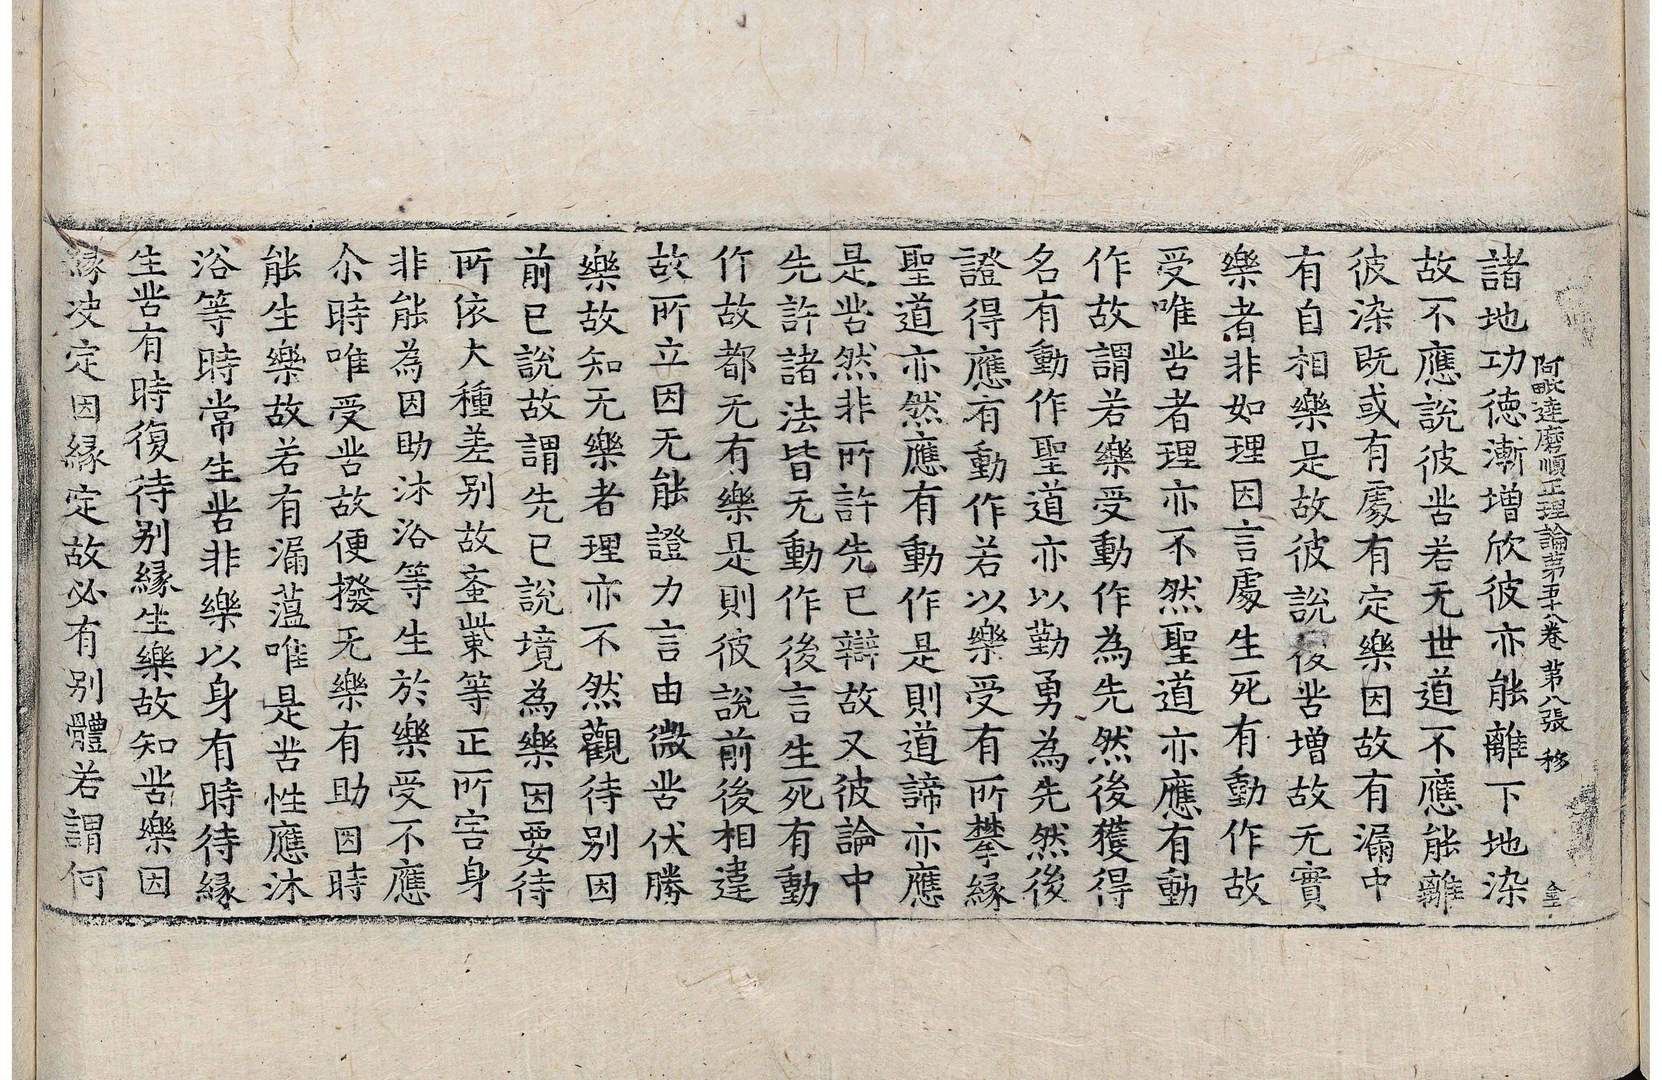 阿毗達磨順正理論第五十八卷 第八張 移
諸地功德漸增欣彼亦能離下地染
故不應說彼苦若无世道不應能離
彼染既或有處有定樂因故有漏中
有自相樂是故彼說後苦增故无實
樂者非如理因言處生死有動作故
受唯苦者理亦不然聖道亦應有動
作故謂若樂受動作為先然後獲得
名有動作聖道亦以勤勇為先然後
證得應有動作若以樂受有所攀緣
聖道亦然應有動作是則道諦亦應
是苦然非所許先已辯故又彼論中
先許諸法皆无動作後言生死有動
作故都无有樂是則彼說前後相違
故所立因无能證力言由微苦伏勝
樂故知无樂者理亦不然觀待別因
前已說故謂先已說境為樂因要待
所依大種差別故蚉㯿等正所害身
非能為因助沐浴等生於樂受不應
尒時唯受苦故便撥无樂有助因時
能生樂故若有漏薀唯是苦性應沐
浴等時常生苦非樂以身有時待緣
生苦有時復待別緣生樂故知苦樂因
緣決定因緣定故必有別體若謂何